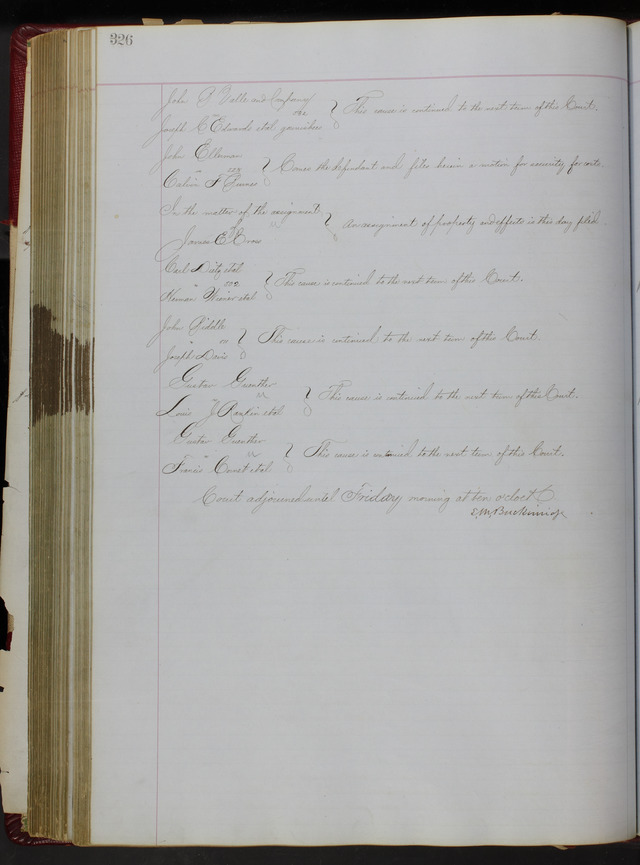 326
John P Valle and Company
vs
Joseph C Edwards et al garnishee
This cause is continued to the next term of this Court.
John Ellerman
vs
Calvin F
Comes the defendant and files herein a motion for security for costs
In the matter of the assignment
of
James E Crow
An assignment of property and effects is this day filed
Carl Dietz et al
vs
Herman et al
This cause is continued to the next term of this Court.
John Riddle
vs
Joseph Davis
This cause is continued to the next term of this Court.
Gustav Guenther
vs
Louis J Rankin et al
This cause is continued to the next term of this Court.
Gustav Guenther
vs
Francis et al
This cause is continued to the next term of this Court.
Court adjourned until Friday morning at ten o'clock